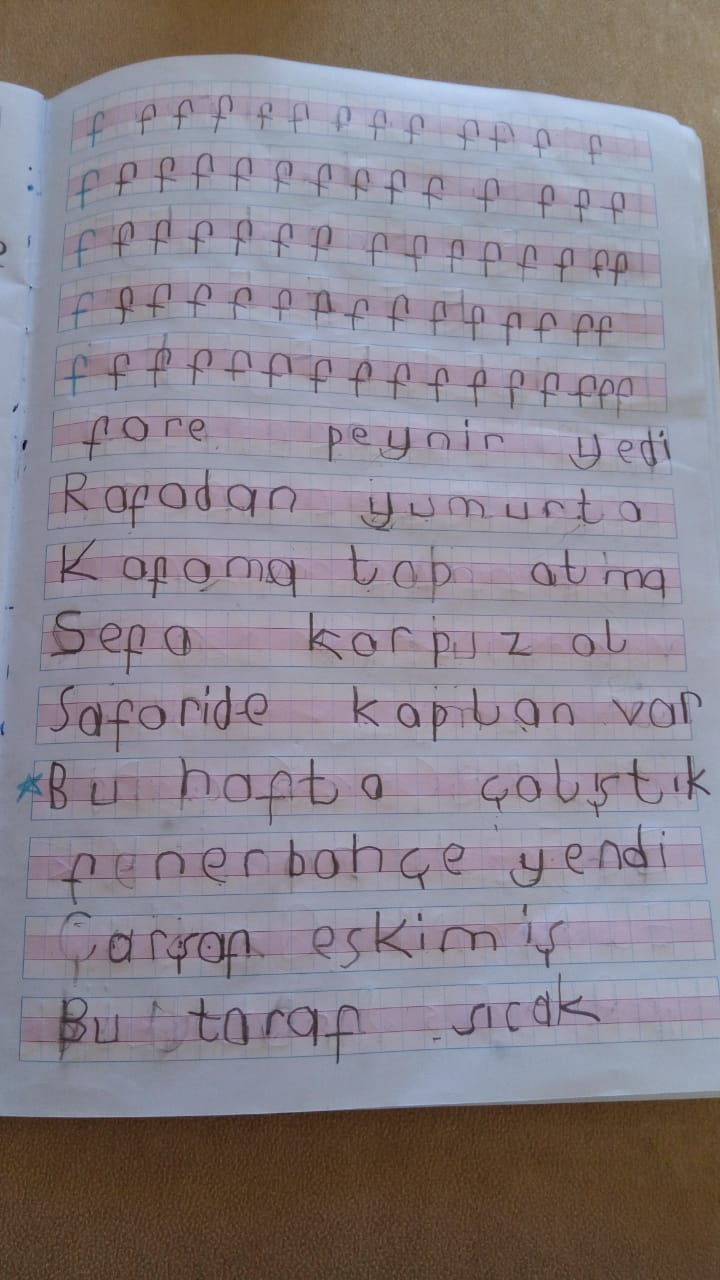 f f f f f f f f f f f f f
f f f f f f f f f f f f f f
f f f f f f f f f f f f f f f
f f f f f f f f f f f f f f f
f f f f f f f f f f f f f f f f
fare peynir yedi
Rafadan yumurta
Kafama top atma
Sefa karpuz al
Safaride kaplan var
Bu hafta çalıştık
fenerbahçe yendi
Çarşaf eskimiş
Bu taraf sıcak